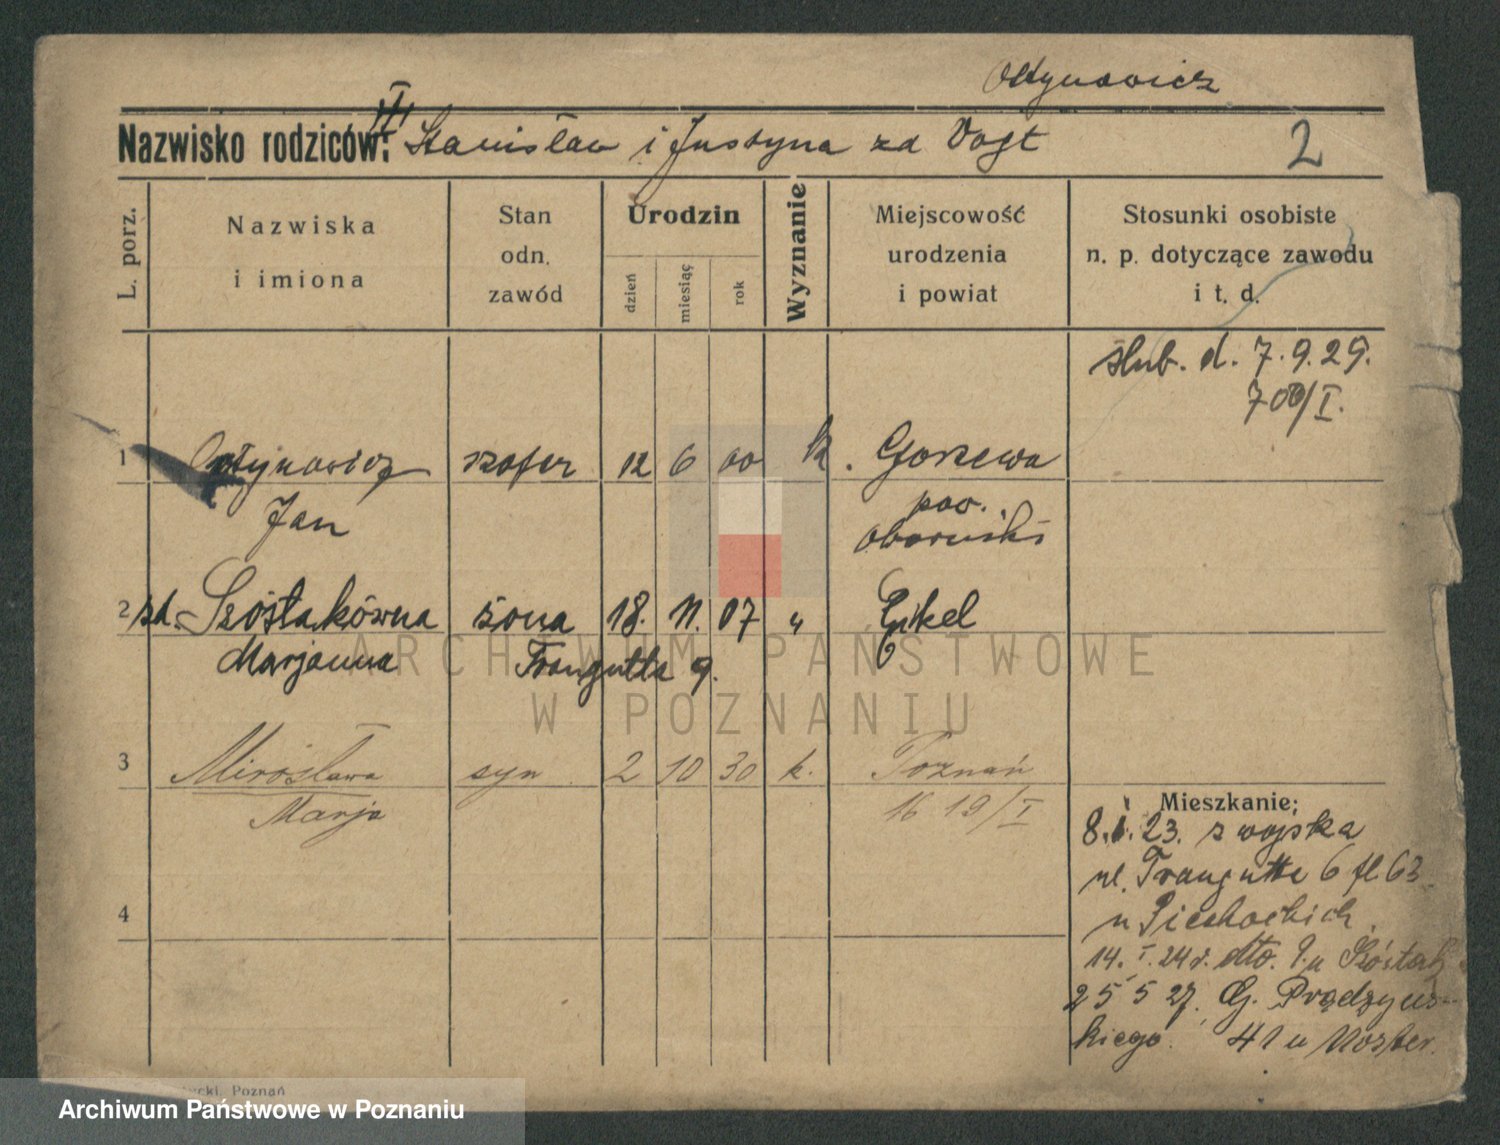 Ołtynowicz
III
Nazwisko rodziców: Stanisław i Justyna zd Vogt
2
L. porz.
Nazwiska
i imiona
Stan
odn.
zawód
Urodzin
dzień
miesiąc
rok
Wyznanie
Miejscowość
urodzenia
i powiat
Stosunki osobiste
n. p. dotyczące zawodu
i t. d.
ślub. d. 7.9.29.
700/I.
1 Ołtynowicz szofer 12 6 00 k. Gorzewo
Jan pow.
obornicki
2 zd. Szóstakówna żona 18. 11. 07 "
Marjanna Traugutta 9.
3 Mirosława syn 2 10 30 k. Poznań
Marja 1619/I
4
Mieszkanie:
8.1.23. z wojska
ul. Traugutta 6 fl. 63
u Piechockich
14. I. 24 r. dto. 9 u Szóstak
25 5 27. G. Prądzyńs-
kiego. 41 u
Poznań
Archiwum Państwowe w Poznaniu
ARCHIWUM PAŃSTWOWE
W POZNANIU